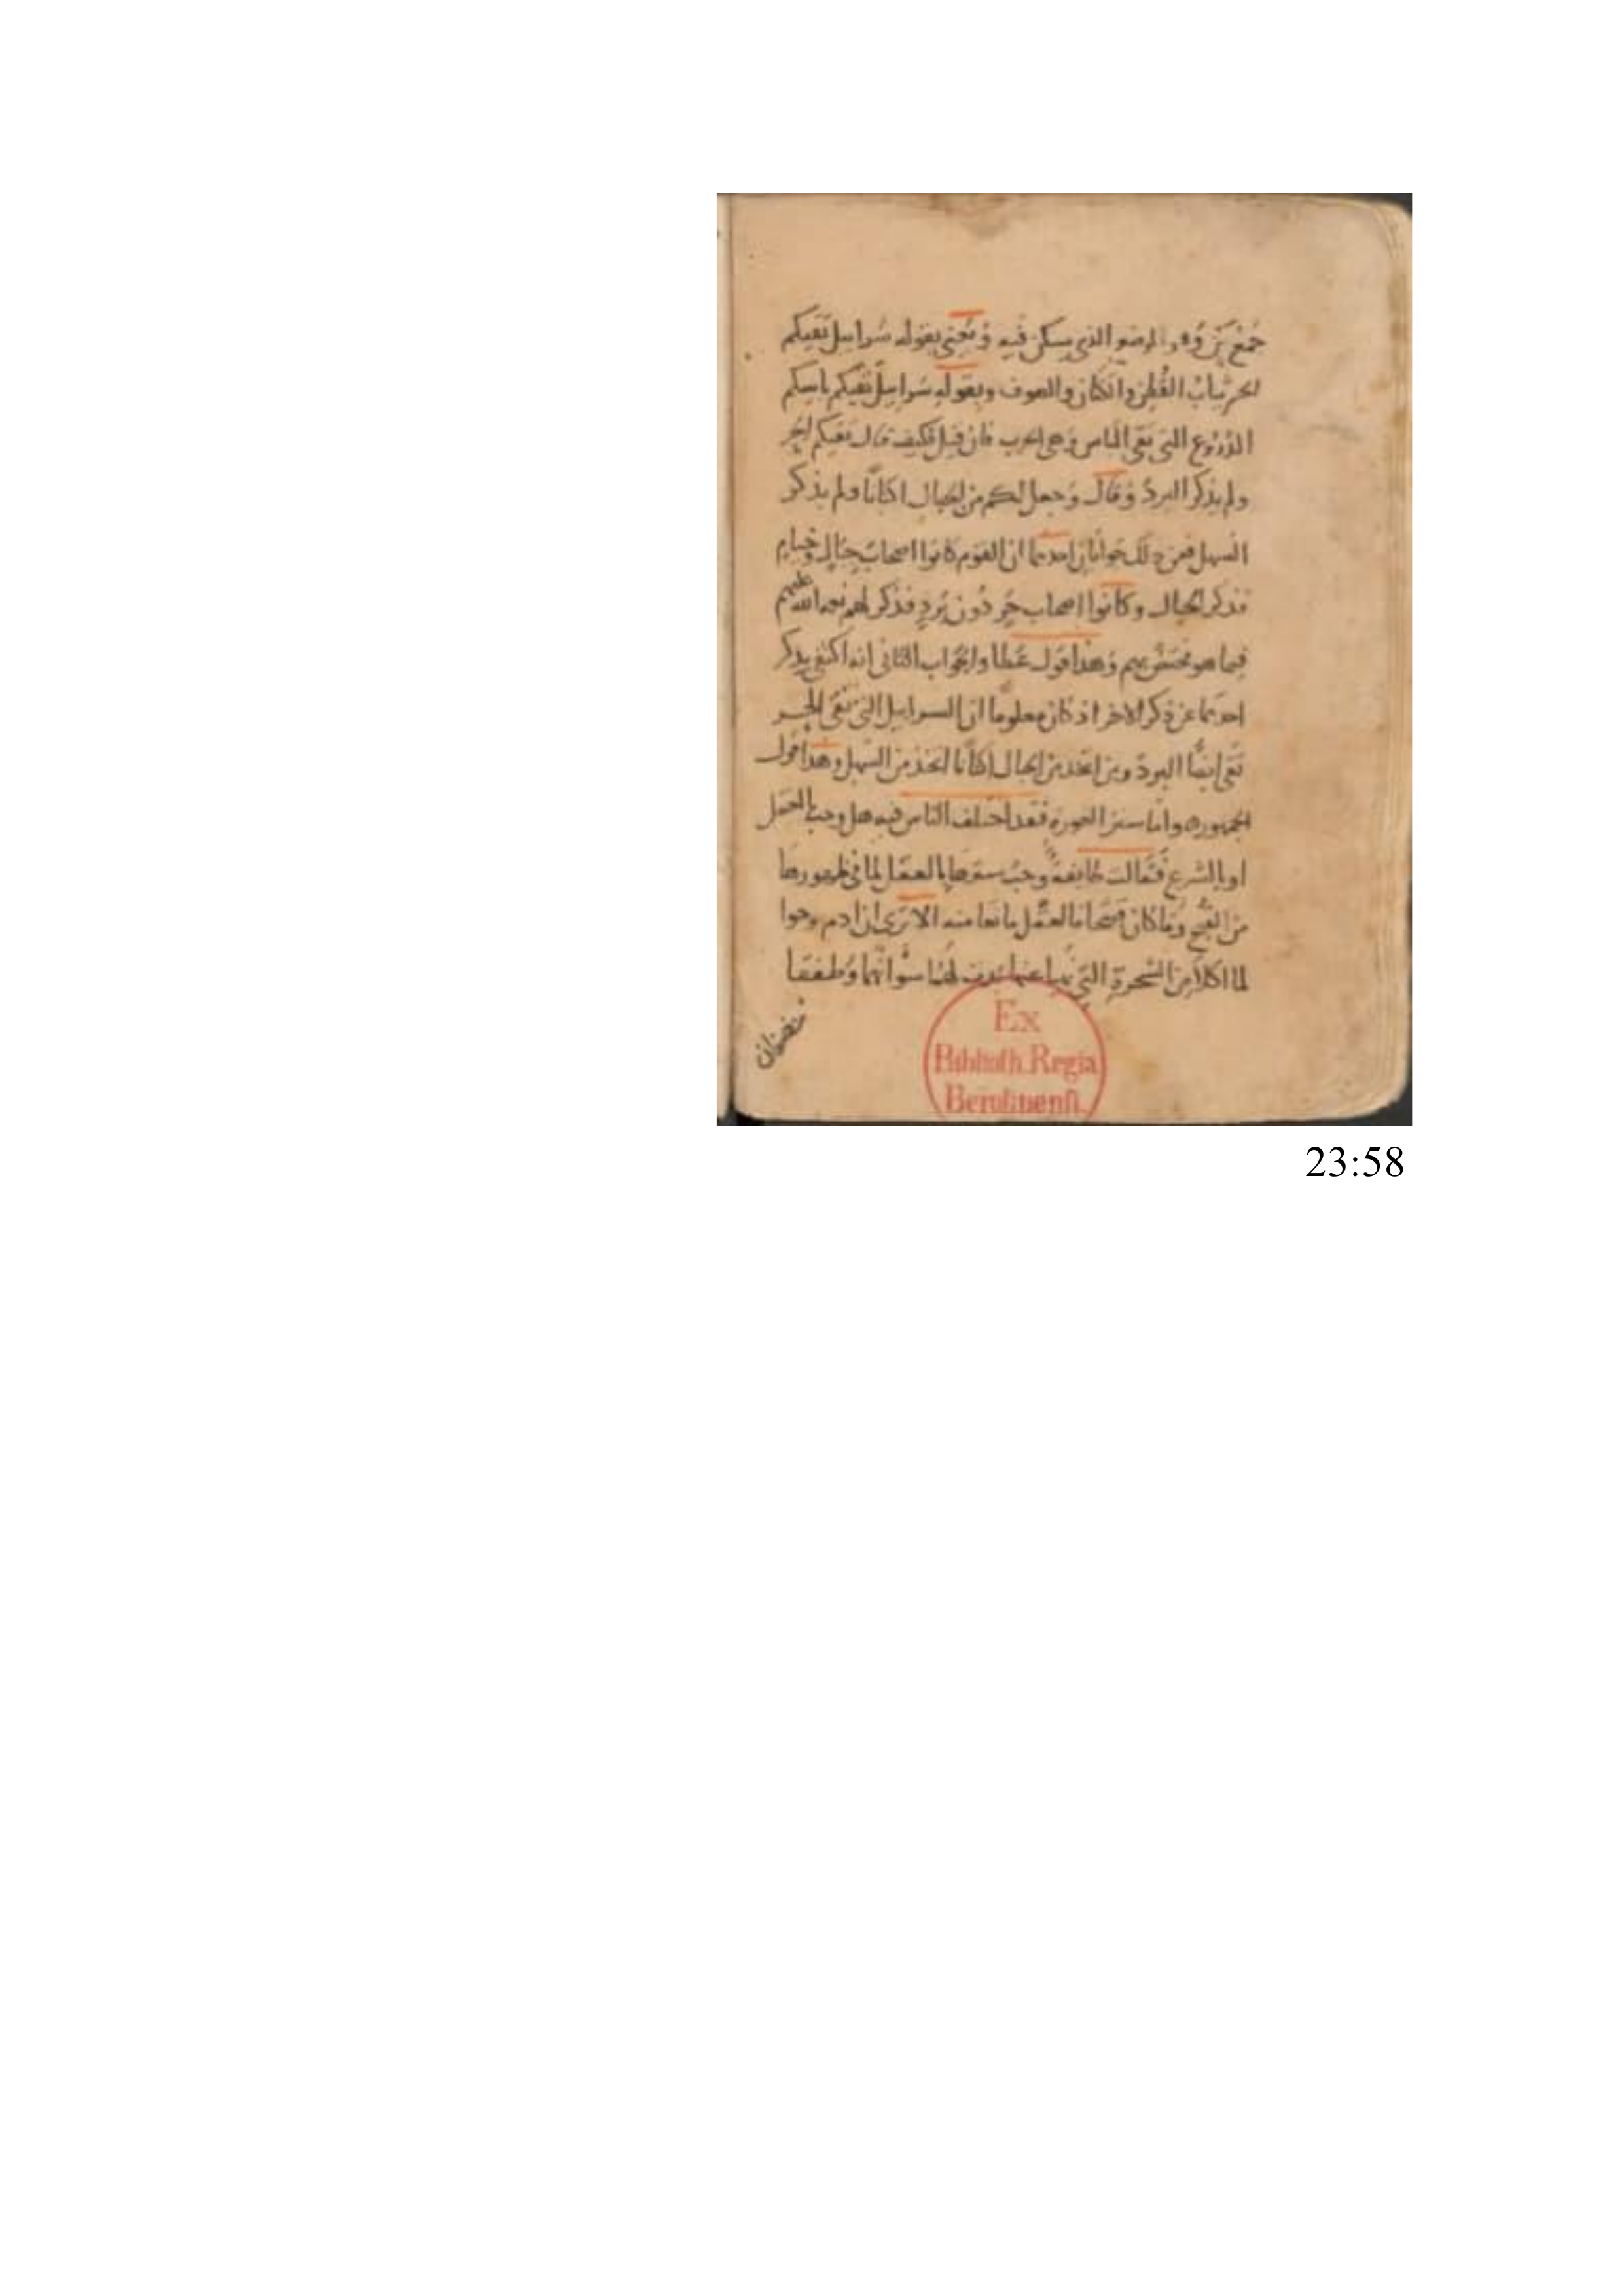 جمع كن وهو الموضع الذي يسكن فيه ويعني بقوله سرابيل تقيكم
الحر ثياب القطن والكتان والصوف وبقوله سرابيل تقيكم باسكم
الدروع التي تقي الباس وهي الحرب فان قيل فكيف قال تقيكم الحر
ولم يذكر البرد وقال وجعل لكم من الجبال اكنانا ولم يذكر
السهل فعن ذلك جوابان احدهما ان القوم كانوا اصحاب جبال وخيام
فذكر الجبال وكانوا اصحاب حر دون برد فذكر لهم نعمه الله عليهم
فيما هو مختص بهم وهذا قول عطا والجواب الثاني انه اكتفى بذكر
احدهما عن ذكر الاخر اذ كان معلوما ان السرابيل التي تقي الحر
تقي ايضا البرد ومن اتخذ من الجبال اكنانا اتخذ من السهل وهذا قول
الجمهور واما ستر العورة فقد اختلف الناس فيه هل وجب بالعقل
او بالشرع فقالت طايفة وجب سترها بالعقل لما في ظهورها
من القبح وما كان قبيحا فالعقل مانعا منه الا ترى ان ادم وحوا
لما اكلا من الشجرة التي نهيا عنها بدت لهما سواتهما وطفقا
يخصفان
Ex
Biblioth. Regia
Berolinensi.
23:58